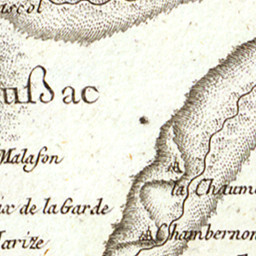 uscol
ußac
Malafon
la Chaum
ix de la Garde
Chambernon
arize